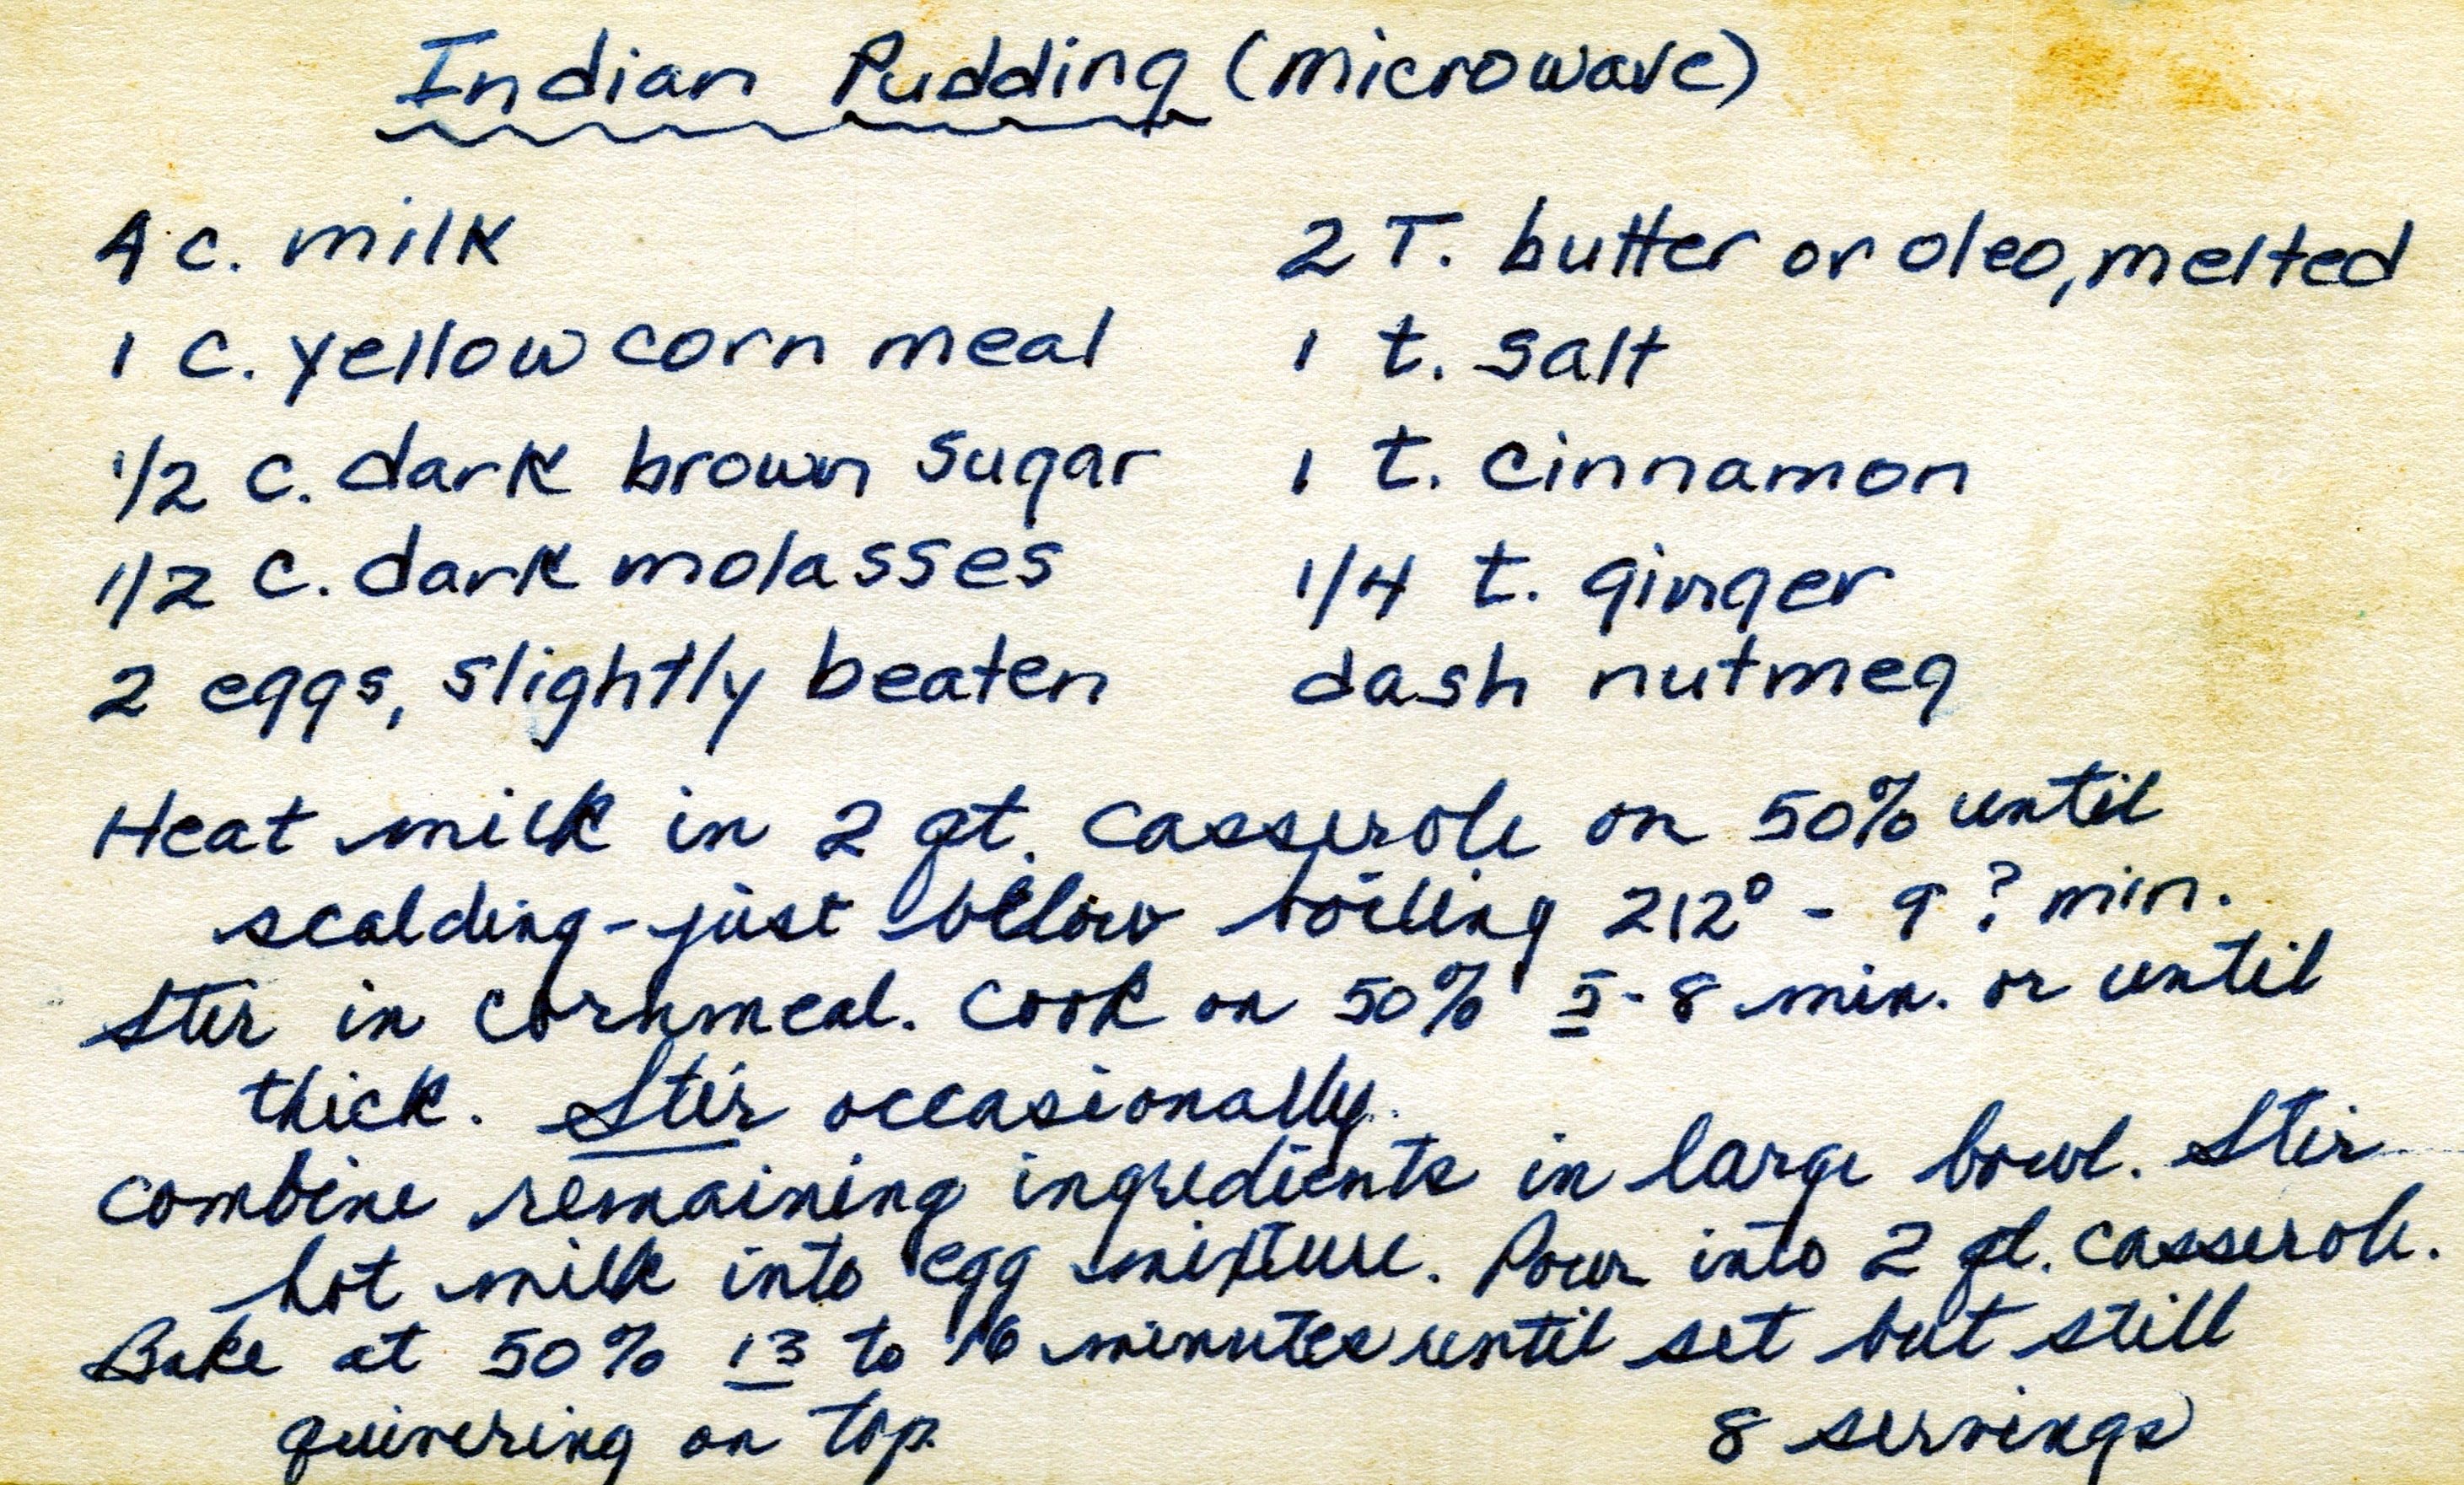 Indian Pudding (microwave)
4 c. milk
1 c. yellow corn meal
1/2 c. dark brown sugar
1/2 c. dark molasses
2 eggs, slightly beaten
2 T. butter or oleo, melted
1 t. salt
1 t. cinnamon
1/4 t. ginger
dash nutmeg
Heat milk in 2 qt. casserole on 50% until
scalding - just below boiling 212° - 9 ? min.
Stir in cornmeal. Cook on 50% 5-8 min. or until
thick. Stir occasionally.
Combine remaining ingredients in large bowl. Stir
hot milk into egg mixture. Pour into 2 qt. casserole.
Bake at 50% 13 to 16 minutes until set but still
quivering on top.
8 servings